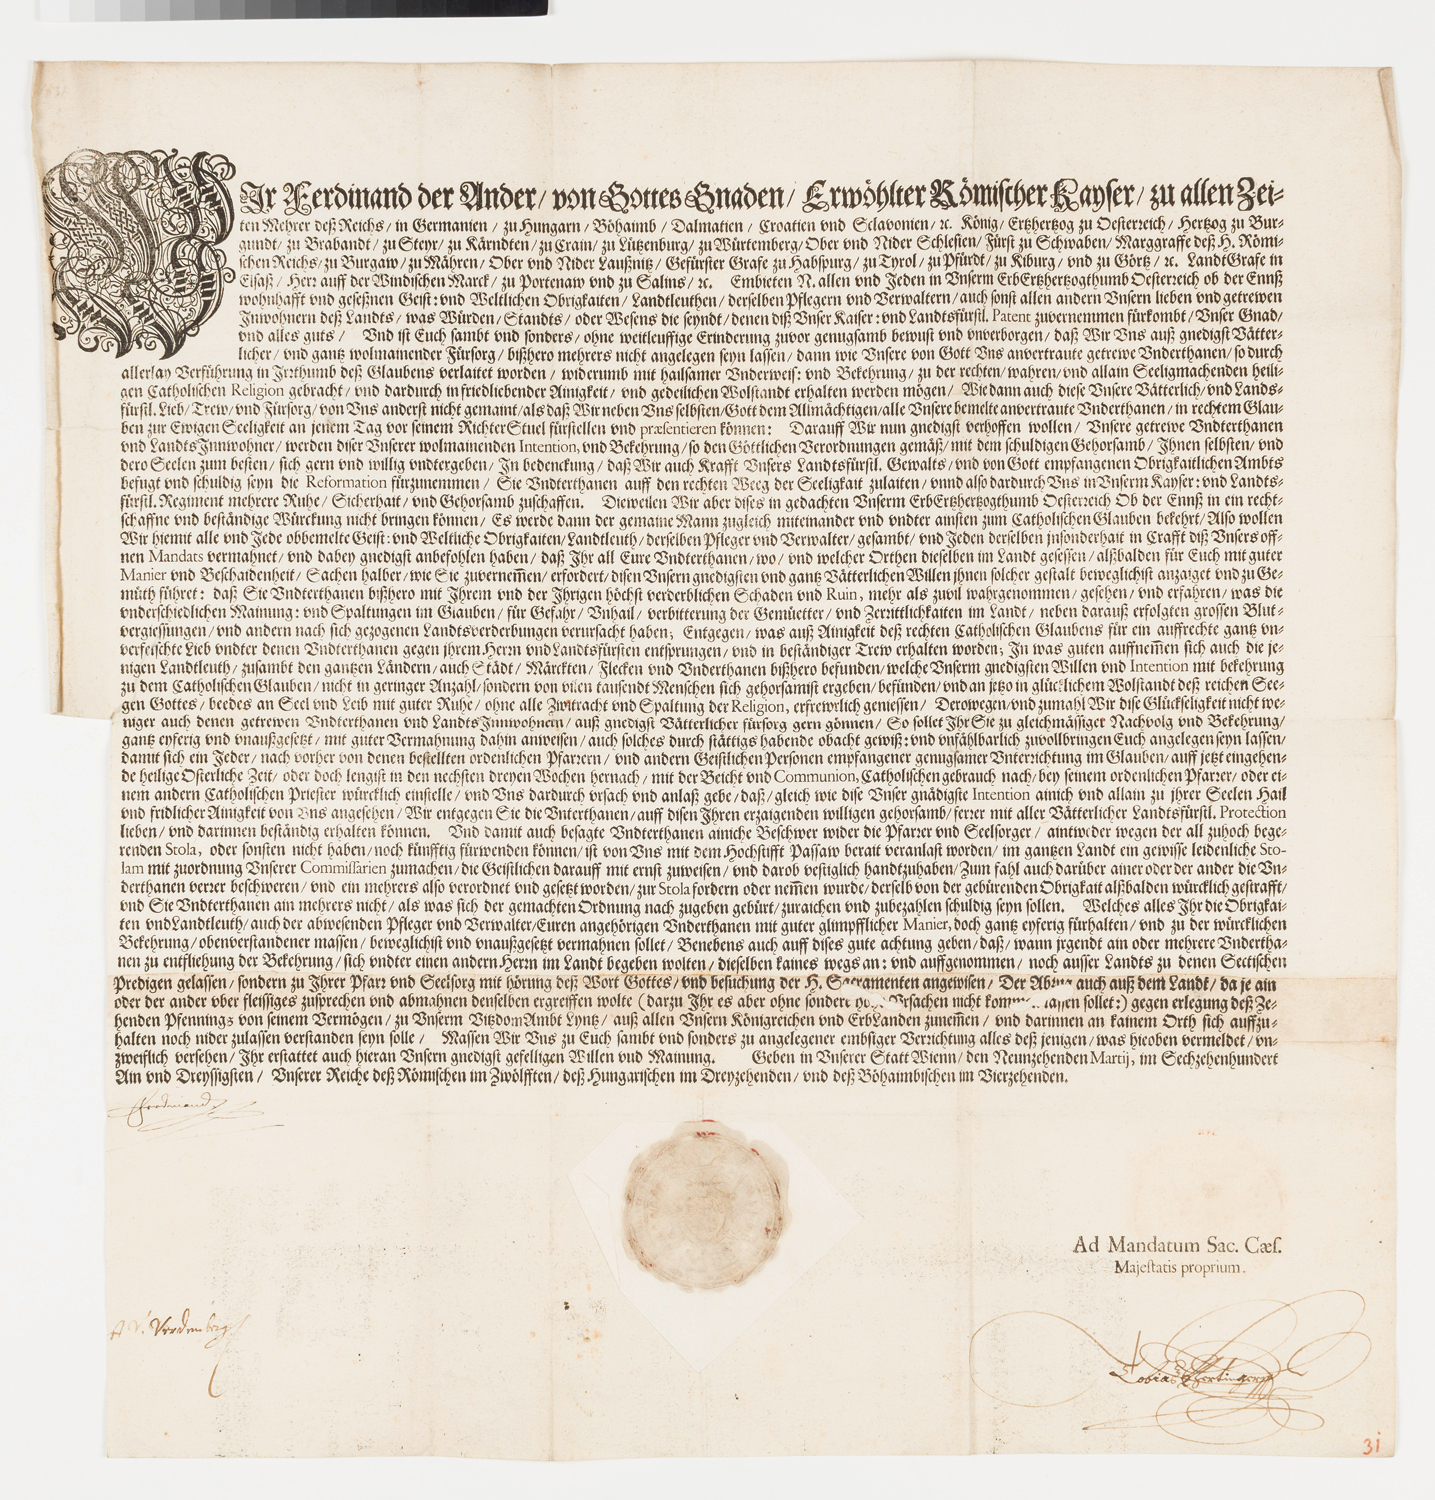 WIr Ferdinand der Ander / von Gottes Gnaden / Erwöhlter Römischer Kayser / zu allen Zei-
ten Mehrer deß Reichs / in Germanien / zu Hungarn / Böhaimb / Dalmatien / Croatien vnd Sclavonien / ꝛc. König / Ertzhertzog zu Oesterreich / Hertzog zu Bur-
gundt / zu Brabandt / zu Steyr / zu Kärndten / zu Crain / zu Lützenburg / zu Würtemberg / Ober vnd Nider Schlesien / Fürst zu Schwaben / Marggraffe deß H. Römi-
schen Reichs / zu Burgaw / zu Mähren / Ober vnd Nider Laußnitz / Gefürster Grafe zu Habspurg / zu Tyrol / zu Pfürdt / zu Kiburg / vnd zu Görtz / ꝛc. LandtGrafe in
Elsaß / Herr auff der Windischen Marck / zu Portenaw vnd zu Salins / ꝛc. Embieten N. allen vnd Jeden in Vnserm ErbErtzhertzogthumb Oesterreich ob der Ennß
wohnhafft vnd geseßnen Geist: vnd Weltlichen Obrigkaiten / Landtleuthen / derselben Pflegern vnd Verwaltern / auch sonst allen andern Vnsern lieben vnd getrewen
Inwohnern deß Landts / was Würden / Standts / oder Wesens die seyndt / denen diß Vnser Kaiser: vnd Landtsfürstl. Patent zuvernemmen fürkombt / Vnser Gnad /
vnd alles guts / Vnd ist Euch sambt vnd sonders / ohne weitleuffige Erinderung zuvor genugsamb bewust vnd vnverborgen / daß Wir Vns auß gnedigst Vätter-
licher / vnd gantz wolmainender Fürsorg / bißhero mehrers nicht angelegen seyn lassen / dann wie Vnsere von Gott Vns anvertraute getrewe Vnderthanen / so durch
allerlay Verführung in Irrthumb deß Glaubens verlaitet worden / widerumb mit hailsamer Vnderweis: vnd Bekehrung / zu der rechten / wahren / vnd allain Seeligmachenden heili-
gen Catholischen Religion gebracht / vnd dardurch in friedliebender Ainigkeit / vnd gedeilichen Wolstandt erhalten werden mögen / Wie dann auch diese Vnsere Vätterlich / vnd Lands-
fürstl. Lieb / Trew / vnd Fürsorg / von Vns anderst nicht gemaint / als daß Wir neben Vns selbsten / Gott dem Allmächtigen / alle Vnsere bemelte anvertraute Vnderthanen / in rechtem Glau-
ben zur Ewigen Seeligkeit an jenem Tag vor seinem RichterStuel fürstellen vnd præsentieren können: Darauff Wir nun gnedigst verhoffen wollen / Vnsere getrewe Vndterthanen
vnd LandtsInnwohner / werden diser Vnserer wolmainenden Intention, vnd Bekehrung / so den Göttlichen Verordnungen gemäß / mit dem schuldigen Gehorsamb / Ihnen selbsten / vnd
dero Seelen zum besten / sich gern vnd willig vndtergeben / In bedenckung / daß Wir auch Krafft Vnsers Landtsfürstl. Gewalts / vnd von Gott empfangenen Obrigkaitlichen Ambts
befugt vnd schuldig seyn die Reformation fürzunemmen / Sie Vndterthanen auff den rechten Weeg der Seeligkait zulaiten / vnnd also dardurch Vns in Vnserm Kayser: vnd Landts-
fürstl. Regiment mehrere Ruhe / Sicherhait / vnd Gehorsamb zuschaffen. Dieweilen Wir aber dises in gedachten Vnserm ErbErtzhertzogthumb Oesterreich Ob der Ennß in ein recht-
schaffne vnd beständige Würckung nicht bringen können / Es werde dann der gemaine Mann zugleich miteinander vnd vndter ainsten zum Catholischen Glauben bekehrt / Also wollen
Wir hiemit alle vnd Jede obbemelte Geist: vnd Weltliche Obrigkaiten / Landtleuth / derselben Pfleger vnd Verwalter / gesambt / vnd Jeden derselben jnsonderhait in Crafft diß Vnsers off-
nen Mandats vermahnet / vnd dabey gnedigst anbefohlen haben / daß Ihr all Eure Vndterthanen / wo / vnd welcher Orthen dieselben im Landt gesessen / alßbalden für Euch mit guter
Manier vnd Beschaidenheit / Sachen halber / wie Sie zuvernem̃en / erfordert / disen Vnsern gnedigsten vnd gantz Vätterlichen Willen jhnen solcher gestalt beweglichist anzaiget vnd zu Ge-
müth führet: daß Sie Vndterthanen bißhero mit Ihrem vnd der Ihrigen höchst verderblichen Schaden vnd Ruin, mehr als zuvil wahrgenommen / gesehen / vnd erfahren / was die
vnderschiedlichen Mainung: vnd Spaltungen im Glauben / für Gefahr / Vnhail / verbitterung der Gemüetter / vnd Zerrittlichkaiten im Landt / neben darauß erfolgten grossen Blut-
vergiessungen / vnd andern nach sich gezogenen Landtsverderbungen verursacht haben; Entgegen / was auß Ainigkeit deß rechten Catholischen Glaubens für ein auffrechte gantz vn-
verfelschte Lieb vndter denen Vndterthanen gegen jhrem Herrn vnd Landtsfürsten entsprungen / vnd in beständiger Trew erhalten worden; In was guten auffnem̃en sich auch die je-
nigen Landtleuth / zusambt den gantzen Ländern / auch Städt / Märckten / Flecken vnd Vnderthanen bißhero befunden / welche Vnserm gnedigsten Willen vnd Intention mit bekehrung
zu dem Catholischen Glauben / nicht in geringer Anzahl / sondern von vilen tausendt Menschen sich gehorsamist ergeben / befünden / vnd an jetzo in glücklichem Wolstandt deß reichen See-
gen Gottes / beedes an Seel vnd Leib mit guter Ruhe / ohne alle Zwitracht vnd Spaltung der Religion, erfrewlich geniessen / Derowegen / vnd zumahl Wir diß Glückseligkeit nicht we-
niger auch denen getrewen Vndterthanen vnd LandtsInnwohnern / auß gnedigst Vätterlicher fürsorg gern gönnen / So sollet Ihr Sie zu gleichmässiger Nachvolg vnd Bekehrung /
gantz eyferig vnd vnaußgesetzt / mit guter Vermahnung dahin anweisen / auch solches durch stättigs habende obacht gewiß: vnd vnfählbarlich zuvollbringen Euch angelegen seyn lassen /
damit sich ein Jeder / nach vorher von denen bestellten ordenlichen Pfarrern / vnd andern Geistlichen Personen empfangener genugsamer Vnterrichtung im Glauben / auff jetzt eingehen-
de heilige Osterliche Zeit / oder doch lengist in den nechsten dreyen Wochen hernach / mit der Beicht vnd Communion, Catholischen gebrauch nach / bey seinem ordenlichen Pfarrer / oder ei-
nem andern Catholischen Priester würcklich einstelle / vnd Vns dardurch vrsach vnd anlaß gebe / daß / gleich wie dise Vnser gnädigste Intention ainich vnd allain zu jhrer Seelen Hail
vnd fridlicher Ainigkeit von Vns angesehen / Wir entgegen Sie die Vnterthanen / auff disen Ihren erzaigenden willigen gehorsamb / ferrer mit aller Vätterlicher Landtsfürstl. Protection
lieben / vnd darinnen beständig erhalten können. Vnd damit auch besagte Vndterthanen ainiche Beschwer wider die Pfarrer vnd Seelsorger / aintweder wegen der all zuhoch bege-
renden Stola, oder sonsten nicht haben / noch künfftig fürwenden können / ist von Vns mit dem Hochstifft Passaw berait veranlast worden / im gantzen Landt ein gewisse leidenliche Sto-
lam mit zuordnung Vnserer Commissarien zumachen / die Geistlichen darauff mit ernst zuweisen / vnd darob vestiglich handtzuhaben / Zum fahl auch darüber ainer oder der ander die Vn-
derthanen verrer beschweren / vnd ein mehrers also verordnet vnd gesetzt worden / zur Stola fordern oder nem̃en wurde / derselb von der gebürenden Obrigkait alßbalden würcklich gestrafft /
vnd Sie Vndterthanen ain mehrers nicht / als was sich der gemachten Ordnung nach zugeben gebürt / zuraichen vnd zubezahlen schuldig seyn sollen. Welches alles Ihr die Obrigkai-
ten vnd Landtleuth / auch der abwesenden Pfleger vnd Verwalter / Euren angehörigen Vnderthanen mit guter glimpfflicher Manier, doch gantz eyferig fürhalten / vnd zu der würcklichen
Bekehrung / obenverstandener massen / beweglichist vnd vnaußgesetzt vermahnen sollet / Benebens auch auff dises gute achtung geben / daß / wann jrgendt ain oder mehrere Vnderthа-
nen zu entfliehung der Bekehrung / sich vndter einen andern Herrn im Landt begeben wolten / dieselben kaines wegs an: vnd auffgenommen / noch ausser Landts zu denen Sectischen
Predigen gelassen / sondern zu Ihrer Pfarr vnd Seelsorg mit hörung deß Wort Gottes / vnd besuchung der H. Sacramenten angewisen / Der Abzug auch auß dem Landt / da je ain
oder der ander vber fleissiges zusprechen vnd abmahnen denselben ergreiffen wolte (darzu Ihr es aber ohne sondere Vrsachen nicht sollet:) gegen erlegung deß Ze-
henden Pfennings von seinem Vermögen / zu Vnserm VitzdomAmbt Lyntz / auß allen Vnsern Königreichen vnd ErbLanden zunem̃en / vnd darinnen an kainem Orth sich auffzu-
halten noch nider zulassen verstanden seyn solle / Massen Wir Vns zu Euch sambt vnd sonders zu angelegener embsiger Verrichtung alles deß jenigen / was hieoben vermeldet / vn-
zweiflich versehen / Ihr erstattet auch hieran Vnsern gnedigst gefelligen Willen vnd Mainung. Geben in Vnserer Statt Wienn / den Neunzehenden Martij, im Sechzehenhundert
Ain vnd Dreyssigsten / Vnserer Reiche deß Römischen im Zwölfften / deß Hungarischen im Dreyzehenden / vnd deß Böhaimbischen im Vierzehenden.
Ferdinand
Ad Mandatum Sac. Cæs.
Majestatis proprium.
A V. Verdenberg
Tobias Gertinger
31